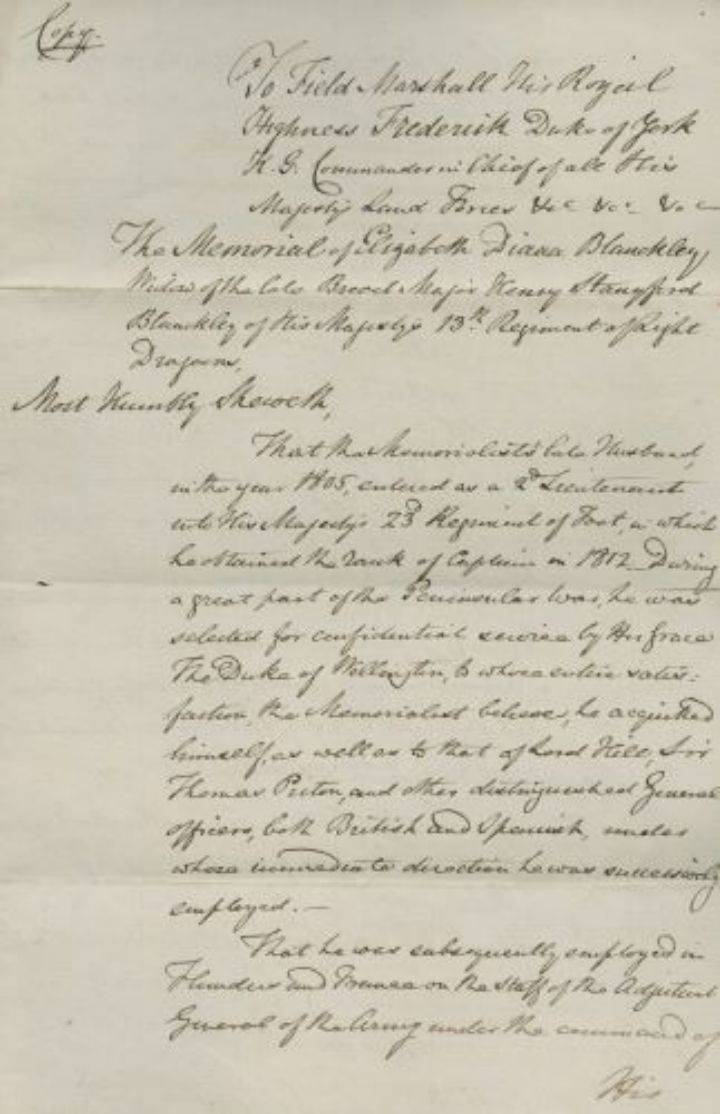 Copy.
To Field Marshall His Royal
Highness Frederick Duke of York
K. G. Commander in Chief of all His
Majesty's Land Forces &c &c &c
The Memorial of Elizabeth Diana Blanckley
Widow of the late Brevet Major Henry Stanyford
Blanckley of His Majesty's 13th Regiment of Light
Dragoons,
Most Humbly Sheweth,
That the Memorialist's late Husband,
in the year 1805, entered as a 2d Lieutenant
into His Majesty's 23d Regiment of Foot, in which
he obtained the rank of Captain in 1812. During
a great part of the Peninsular War, he was
selected for confidential service by His Grace
The Duke of Wellington, to whose entire satis:
faction, the Memorialist believes, he acquitted
himself, as well as to that of Lord Hill, Sir
Thomas Picton, and other distinguished General
officers, both British and Spanish, under
whose immediate direction he was successively
employed. —
That he was subsequently employed in
Flanders and France on the Staff of the Adjutant
General of the Army under the command of
His